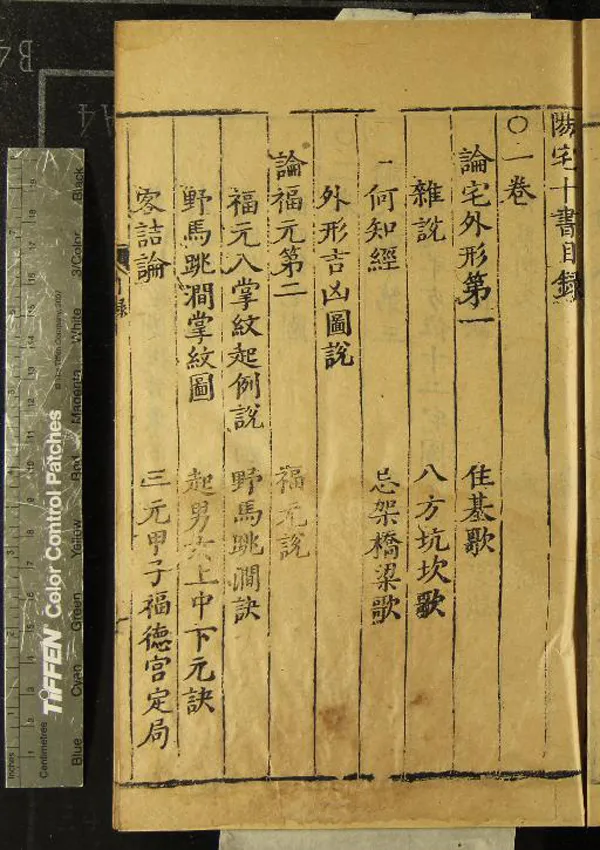 陽宅十書目録
○一卷
論宅外形第一
住基歌
雜說
八方坑坎歌
何知經
忌架橋梁歌
外形吉凶圖說
論福元第二
福元說
福元八掌紋起例說
野馬跳澗訣
野馬跳澗掌紋圖
起男女上中下元訣
客詰論
三元甲子福德宮定局
TIFFEN Color Control Patches
© The Tiffen Company, 2007
Inches
Centimetres
Blue
Cyan
Green
Yellow
Red
Magenta
White
3/Color
Black
B4
A4